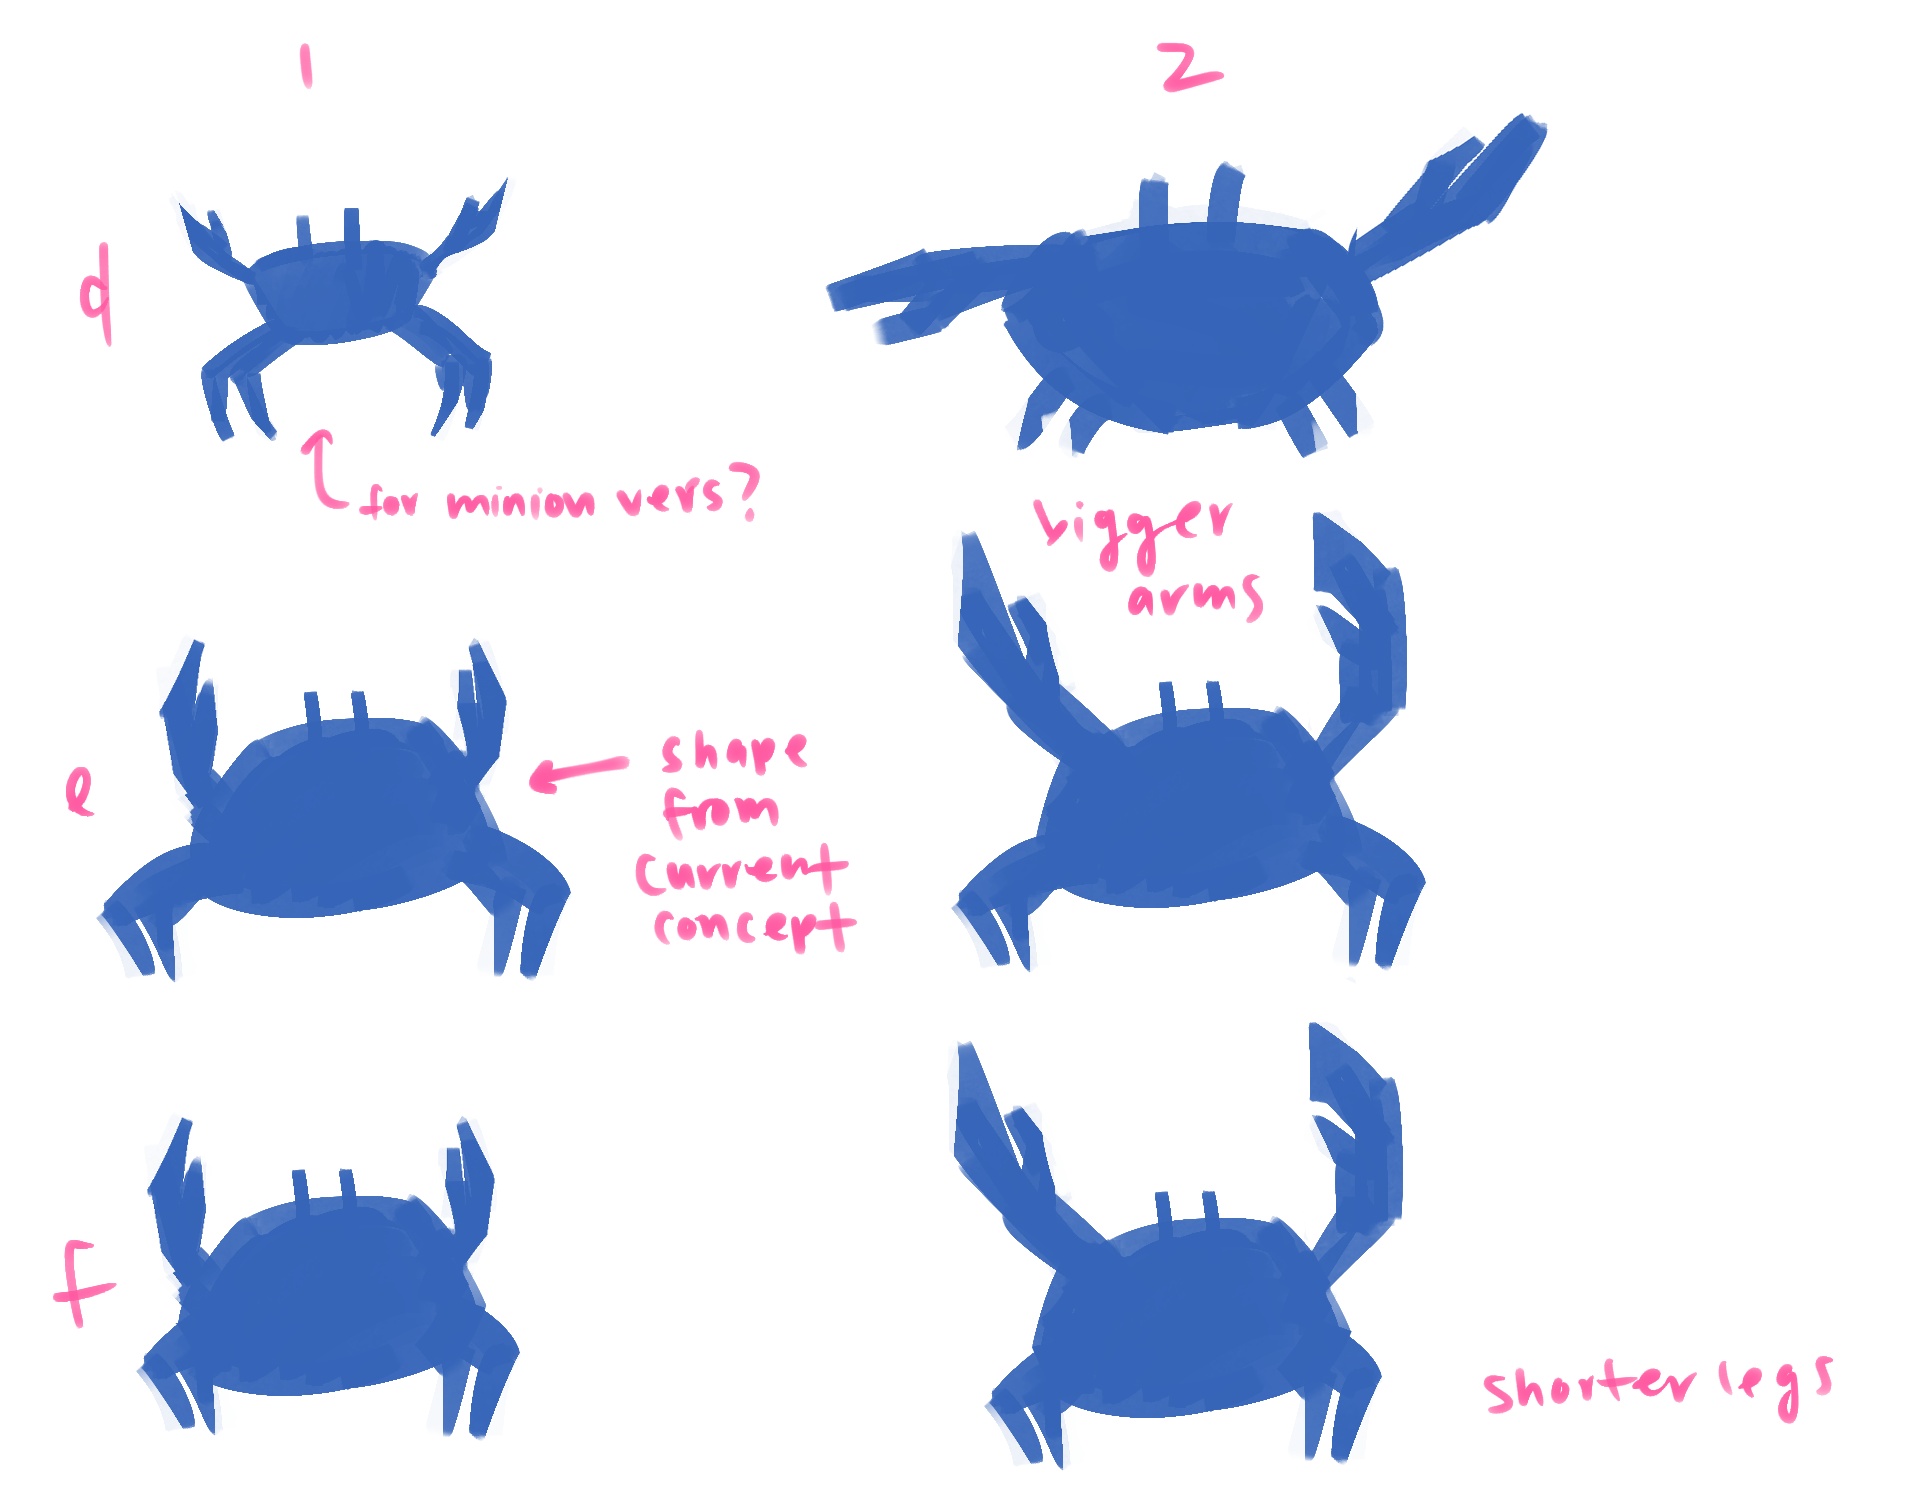 1
2
d
for minion vers?
bigger
arms
e
shape
from
current
concept
f
shorter legs